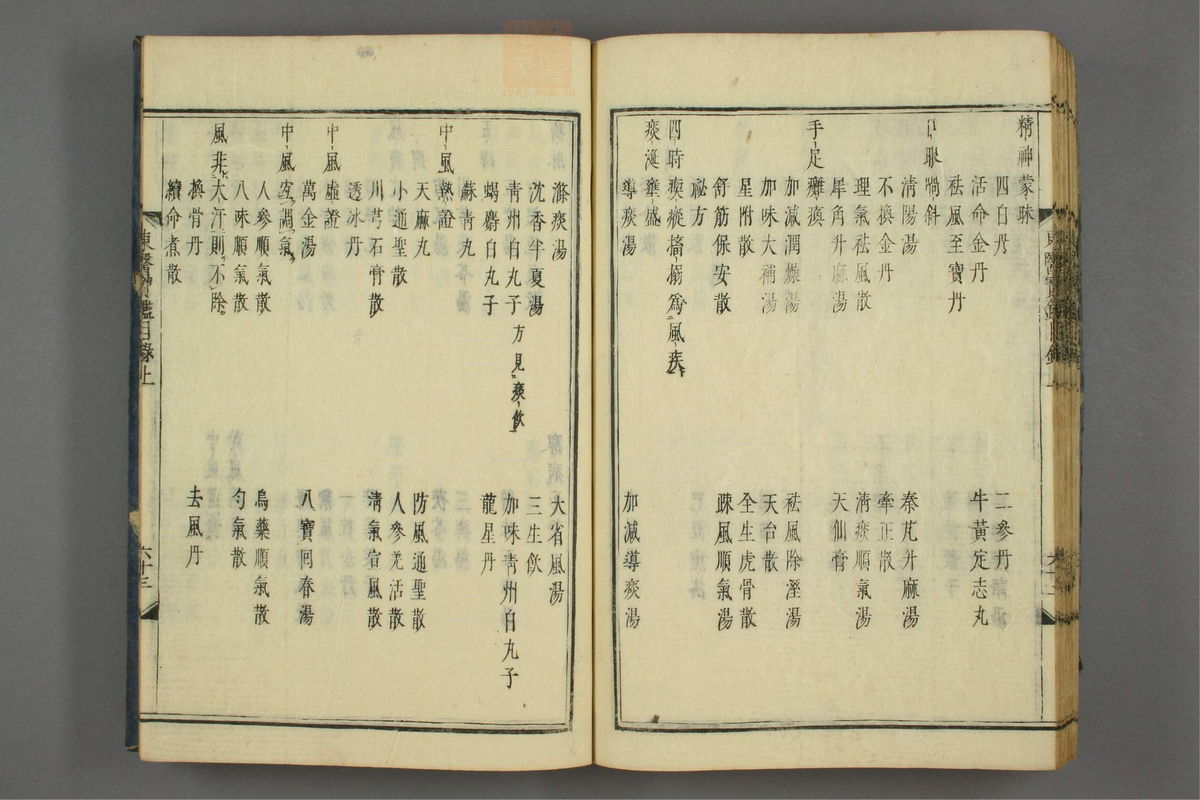 精神蒙昧
四白丹　二參丹
活命金丹　牛黃定志丸
祛風至寶丹
口眼喎斜
清陽湯　秦艽升麻湯
不換金丹　牽正散
理氣祛風散　清痰順氣湯
犀角升麻湯　天仙膏
手足癱瘓
加減潤燥湯　祛風除溼湯
加味大補湯　天台散
星附散　全生虎骨散
舒筋保安散　疎風順氣湯
祕方
四時瘈瘲搐搦爲風疾
痰涎壅盛
導痰湯　加減導痰湯
滌痰湯　大省風湯
沈香半夏湯　三生飲
青州白丸子方見痰飲　加味青州白丸子
蝎麝白丸子　龍星丹
蘇青丸
中風熱證
天麻丸　防風通聖散
小通聖散　人參羌活散
川芎石膏散　清氣宣風散
透冰丹
中風虛證
萬金湯　八寶回春湯
中風宜調氣
人參順氣散　烏藥順氣散
八味順氣散　勻氣散
風非大汗則不除
換骨丹　去風丹
續命煮散
東醫寶鑑目錄上　六十三